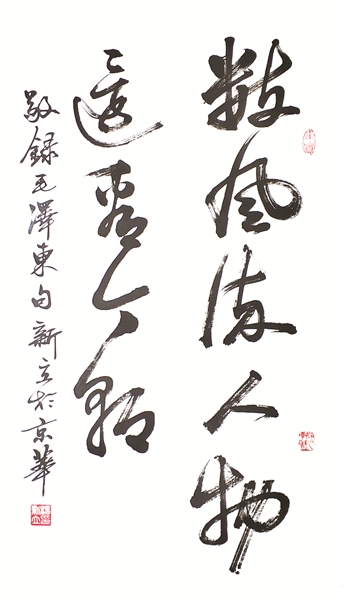 数风流人物
還看今朝
敬録毛澤東句新立於京華